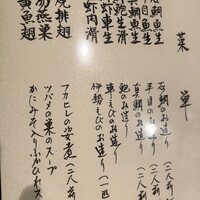 菜單
鯛魚生 石鯛のお造り(二人前
目魚生 平目のお造り(二人前
鯛魚生 真鯛のお造り(二人前
生滑 鮑のお造り
生 車えびのお造り
肉滑 伊勢えびのお造り(一匹
排翅 フカヒレの姿煮(二人前
燕 ツバメの巣のスープ
黄魚翅 かにみそ入りふかひれス